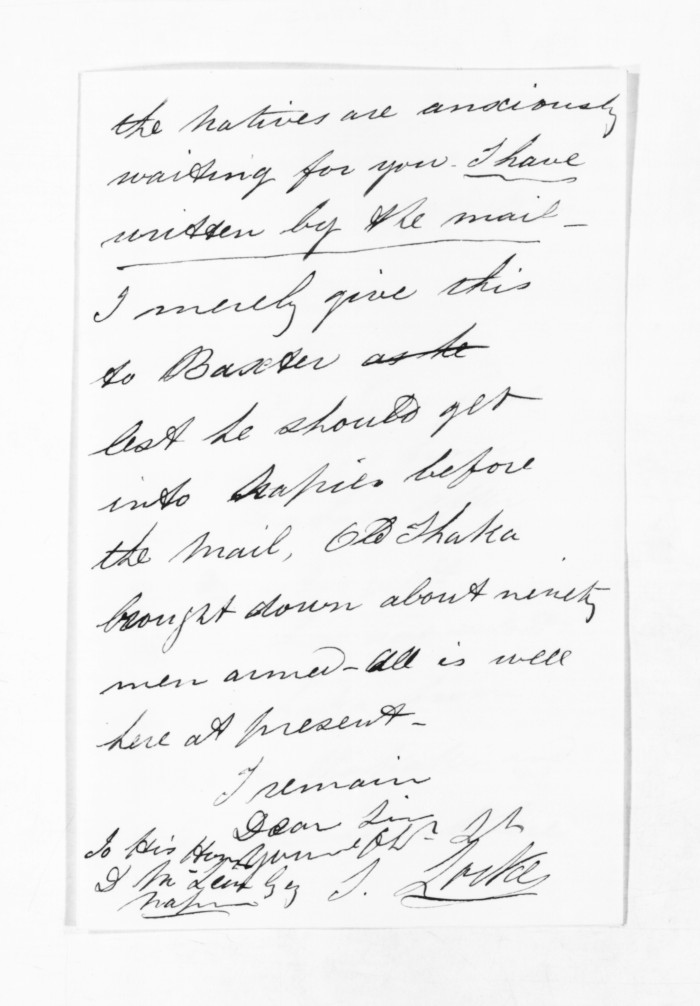 the natives are anxiously
waiting for you. I have
written by the mail -
I merely give this
to Baxter as he
lest he should get
into Napier before
the mail, Old Ihaka
brought down about ninety
men armed - All is well
here at present -
I remain
Dear Sir
Your Obt St
S. Locke
To His Honor
D McLean Esq
Napier